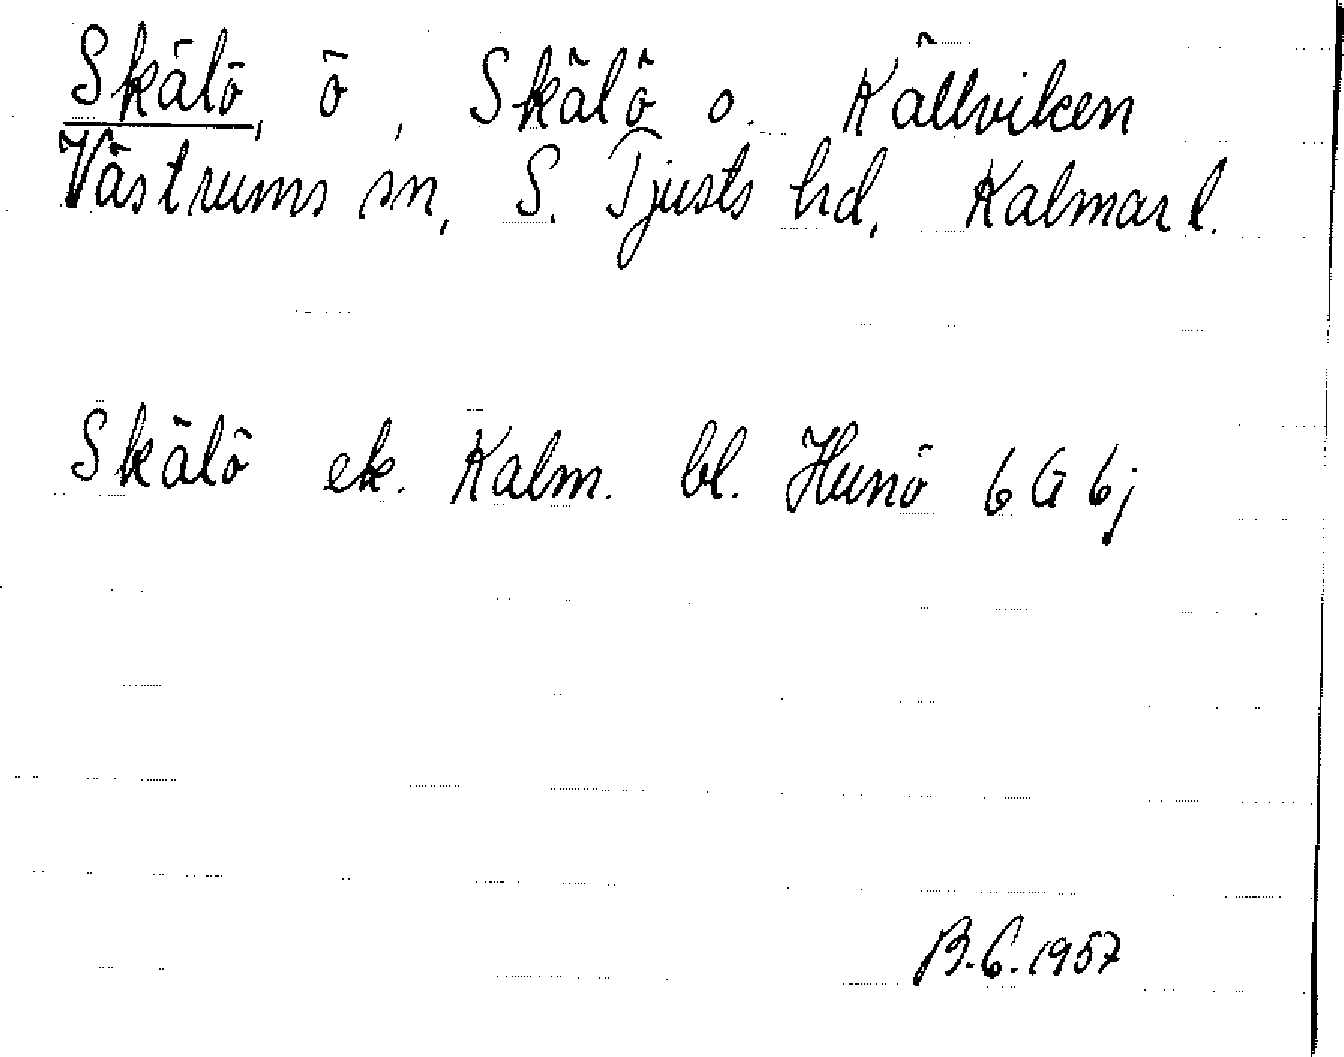 Skälö, ö, Skälö o. Källviken
Västrums sn, S. Tjusts hd, Kalmar l.
Skälö ek. Kalm. bl. Hunö 6 G 6j
B.C. 1957